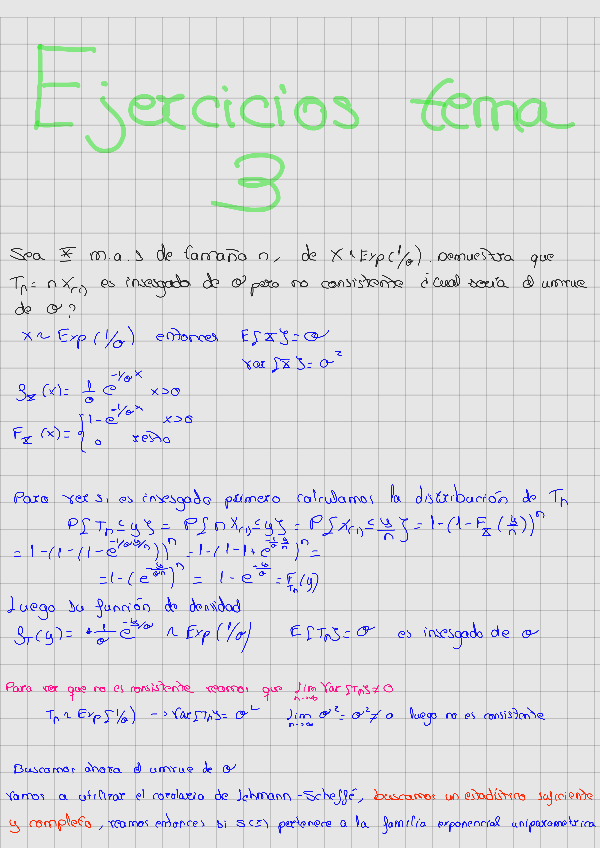 Ejercicios tema
3
Sea X m.a.s de tamaño n, de X~Exp(1/θ). Demuestra que
Tn = n X(1) es insesgado de θ pero no consistente ¿cual seria el umvue
de θ?
X ~ Exp(1/θ) entonces E[X] = θ
Var[X] = θ²
f_X(x) = 1/θ e^(-1/θ x) x>0
F_X(x) = { 1-e^(-1/θ x) x>0
0 resto
Para ver si es insesgado primero calculamos la distribución de Tn
P{Tn ≤ y} = P{n X(1) ≤ y} = P{X(1) ≤ y/n} = 1-(1-F_X(y/n))^n
= 1-(1-(1-e^(-1/θ y/n)))^n = 1-(1-1+e^(-1/θ y/n))^n =
= 1-(e^(-y/θn))^n = 1-e^(-y/θ) = F_Tn(y)
Luego su función de densidad
f_T(y) = +1/θ e^(-y/θ) ~ Exp(1/θ) E[Tn] = θ es insesgado de θ
Para ver que no es consistente veamos que lim n→∞ Var[Tn] ≠ 0
Tn ~ Exp(1/θ) → Var[Tn] = θ² lim n→∞ θ² = θ² ≠ 0 luego no es consistente
Buscamos ahora el umvue de θ
Vamos a utilizar el corolario de Lehmann-Scheffé, buscamos un estadístico suficiente
y completo, veamos entonces si f(x) pertenece a la familia exponencial uniparametrica